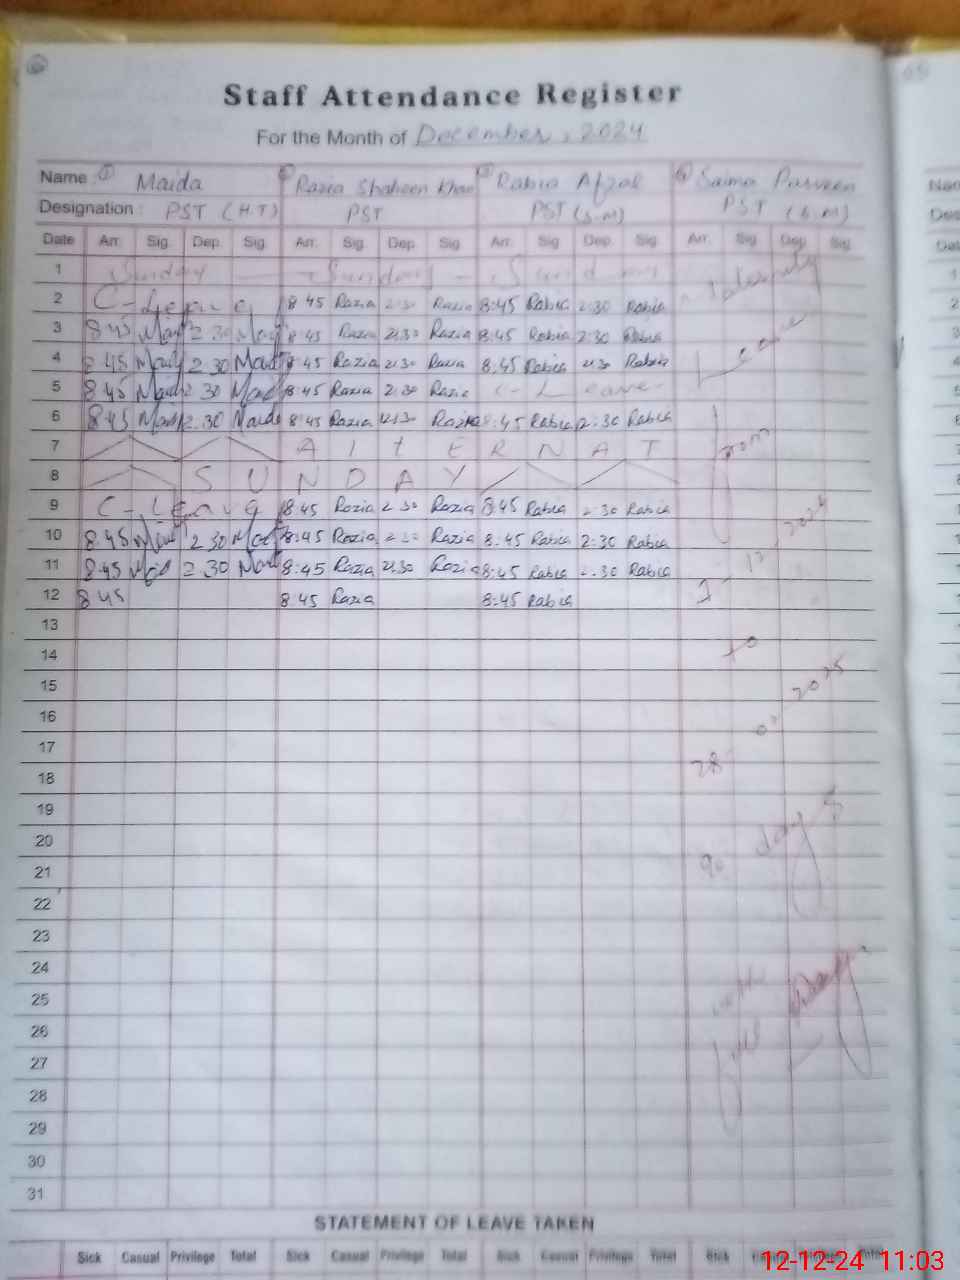 Staff Attendance Register
For the Month of December, 2024
Name : ① Maida Razia Shaheen Khan Rabia Afzal ④ Saima Parveen
Designation : PST (H.T) PST PST (S.M) PST (S.M)
Date Arr. Sig. Dep. Sig. Arr. Sig. Dep. Sig. Arr. Sig. Dep. Sig. Arr. Sig. Dep. Sig.
1 Sunday Sunday Sunday
2 C-Leave 8 45 Razia 2:30 Razia 8:45 Rabia 2:30 Rabia
3 8 45 2 30 8 45 Razia 2:30 Razia 8:45 Rabia 2:30 Rabia
4 8 45 2 30 8 45 Razia 2:30 Razia 8.45 Rabia 2:30 Rabia
5 8 45 2 30 8 45 Razia 2:30 Razia C-Leave
6 8 45 2 30 Maida 8 45 Razia Razia 8:45 Rabia 2:30 Rabia
7 A l t E R N A T
8 S U N D A Y
9 C-Leave 8 45 Razia 2 30 Razia 8 45 Rabia 2:30 Rabia
10 8 45 2 30 8:45 Razia Razia 8:45 Rabia 2:30 Rabia
11 8:45 2 30 8:45 Razia 2:30 Razia 8:45 Rabia 2:30 Rabia
12 8 45 8 45 Razia 8:45 Rabia
Maternity
Leave
from
2024
13
14 to
15 2025
16
17
18 28
19
20
21 90 days
22
23
24
25 with
26
27 full
28
29
30
31
STATEMENT OF LEAVE TAKEN
Sick Casual Privilege Total Sick Casual Privilege Total Sick Casual Privilege Total Sick
12-12-24 11:03